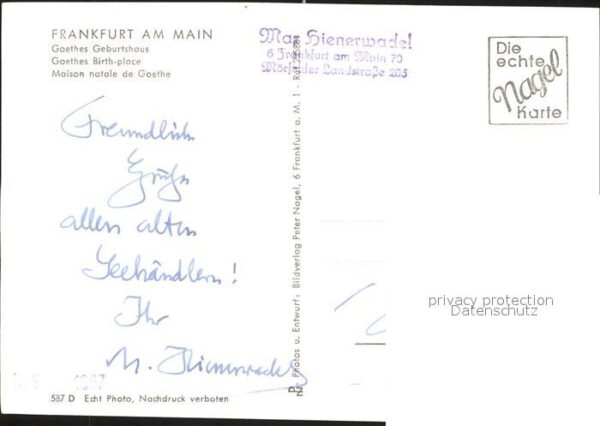 FRANKFURT AM MAIN
Goethes Geburtshaus
Goethes Birth-place
Maison natale de Goethe
Max Hienerwadel
6 Frankfurt am Main 70
Mörfelder Landstraße 203
Die
echte
Nagel
Karte
Freundliche
Grüße
allen alten
Seehändlern!
Ihr
M. Hienerwadel
587 D Echt Photo, Nachdruck verboten
Photos u. Entwurf: Bildverlag Peter Nagel, 6 Frankfurt a. M. 1
privacy protection
Datenschutz